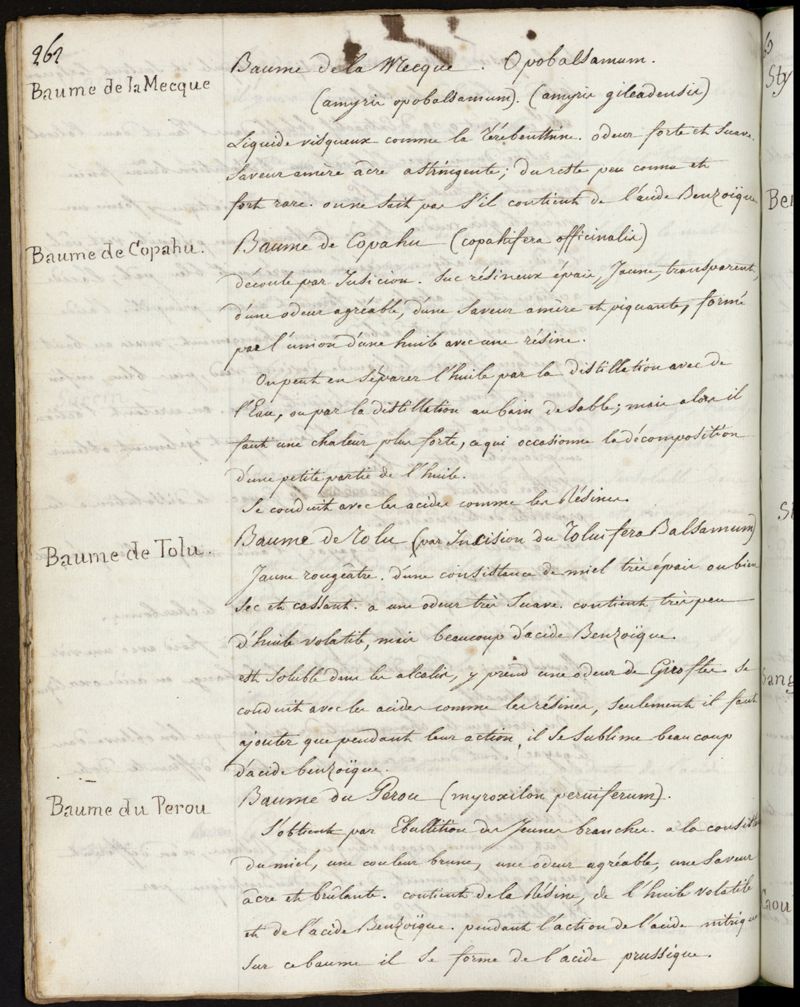 262
Baume de la Mecque
Baume de la Mecque. Opobalsamum.
(amyris opobalsamum). (amyris gileadensis)
Liquide visqueux comme la Térébenthine. odeur forte et suave.
Saveur amère âcre astringente; du reste peu connu et
fort rare. on ne sait pas s'il contient de l'acide Benzoïque
Baume de Copahu.
Baume de Copahu (copahifera officinalis)
découle par Incision. Suc résineux épais, Jaune, transparent,
d'une odeur agréable, d'une Saveur amère et piquante, formé
par l'union d'une huile avec une résine.
On peut en séparer l'huile par la distillation avec de
l'Eau, ou par la distillation au bain de sable; mais alors il
faut une chaleur plus forte, ce qui occasionne la décomposition
d'une petite partie de l'huile.
Se conduit avec les acides comme les Résines.
Baume de Tolu.
Baume de Tolu (par Incision du Toluifera Balsamum)
Jaune rougeâtre. d'une consistance de miel très épais ou bien
Sec et cassant. a une odeur très Suave. contient très peu
d'huile volatile, mais beaucoup d'acide Benzoïque.
est Soluble dans les alcalis, y prend une odeur de Girofles se
conduit avec les acides comme les résines, seulement il faut
ajouter que pendant leur action, il se sublime beaucoup
d'acide benzoïque.
Baume du Perou
Baume du Perou (myroxilon peruiferum).
S'obtient par Ebullition des Jeunes branches. a la consist
du miel, une couleur brune, une odeur agréable, une Saveur
âcre et brûlante. contient de la Résine, de l'huile volatile
et de l'acide Benzoïque. pendant l'action de l'acide nitrique
sur ce baume il se forme de l'acide prussique.
Sty
Ben
Sang
Caou